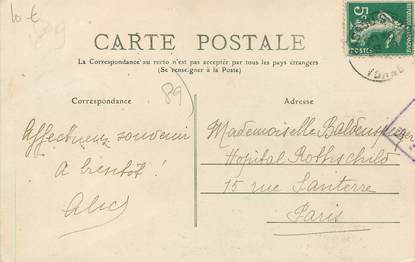 10 €
89
CARTE POSTALE
La Correspondance au recto n'est pas acceptée par tous les pays étrangers
(Se renseigner à la Poste)
89
Correspondance
Adresse
Affectueux souvenir
A bientôt !
Alice
Mademoiselle
Hopital Rothschild
15 rue Santerre
Paris
5
YONNE